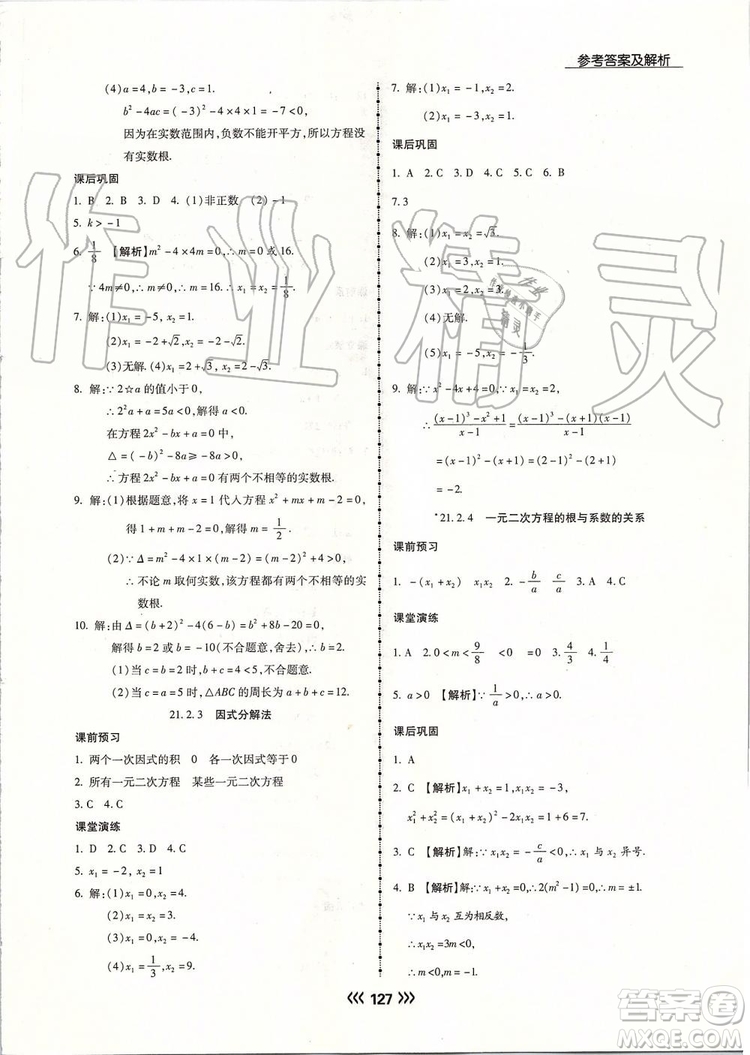 参考答案及解析
(4)a=4,b=-3,c=1.
b²-4ac=(-3)²-4×4×1=-7<0,
因为在实数范围内,负数不能开平方,所以方程没
有实数根.
课后巩固
1. B 2. B 3. D 4. (1)非正数 (2)-1
5. k>-1
6. 1/8 【解析】m²-4×4m=0,∴m=0或16.
∵4m≠0,∴m=16.∴x₁=x₂=1/8.
7. 解:(1)x₁=-5,x₂=1.
(2)x₁=-2+√2,x₂=-2-√2.
(3)无解.(4)x₁=2+√2,x₂=2-√2.
8. 解:∵2☆a的值小于0,
∴2²a+a=5a<0,解得a<0.
在方程2x²-bx+a=0中,
Δ=(-b)²-8a≥-8a>0,
∴方程2x²-bx+a=0有两个不相等的实数根.
9. 解:(1)根据题意,将x=1代入方程x²+mx+m-2=0,
得1+m+m-2=0,解得m=1/2.
(2)∵Δ=m²-4×1×(m-2)=(m-2)²+4>0,
∴不论m取何实数,该方程都有两个不相等的实
数根.
10. 解:由Δ=(b+2)²-4(6-b)=b²+8b-20=0,
解得b=2或b=-10(不合题意,舍去);
(1)当c=2时,b=2,不合题意,
(2)当c=5时,△ABC的周长为5+5+2=12.
21.2.3 因式分解法
课前预习
1. 两个一次因式的积 0 各一次因式等于0
2. 所有一元二次方程 某些一元二次方程
3. C 4. C
课堂演练
1. D 2. D 3. D 4. C
5. x₁=-2,x₂=1.
6. 解:(1)x₁=0,x₂=4.
(2)x₁=0,x₂=4.
(3)x₁=0,x₂=-4.
(4)x₁=1/3,x₂=9.
7. 解:(1)x₁=-1,x₂=2.
(2)x₁=-3,x₂=1.
课后巩固
1. A 2. C 3. D 4. C 5. C 6. B
7.3
8. 解:(1)x₁=x₂=√3.
(3)x₁=x₂=-4.
(4)无解.
(5)x₁=-1,x₂=-1/3.
9. 解:∵x²-4x+4=0,∴x=2.
∴((x-1)³-x²+1)/(x-1)=((x-1)³-(x+1)(x-1))/(x-1)
=(x-1)²-(x+1)=(2-1)²-(2+1)
=-2.
*21.2.4 一元二次方程的根与系数的关系
课前预习
1. -(x₁+x₂) x₁x₂ 2. -b/a c/a 3. A 4. D
课堂演练
1. A 2.0<m<9/8 <0 =0 3. 4/3 4. 1/4
5. a>0 【解析】∵1/a>0,∴a>0.
课后巩固
1. A
2. C 【解析】x₁+x₂=1,x₁x₂=-3,
x₁²+x₂²=(x₁+x₂)²-2x₁x₂=1+6=7.
3. C 【解析】∵x₁x₂=-c/a<0,∴x₁与x₂异号.
4. B 【解析】∵x₁+x₂=0,∴2(m²-1)=0,m=±1.
∵x₁与x₂互为相反数,
∴x₁x₂=3m<0,
∴m<0,∴m=-1.
127
作业精灵
答案圈
MXQE.COM